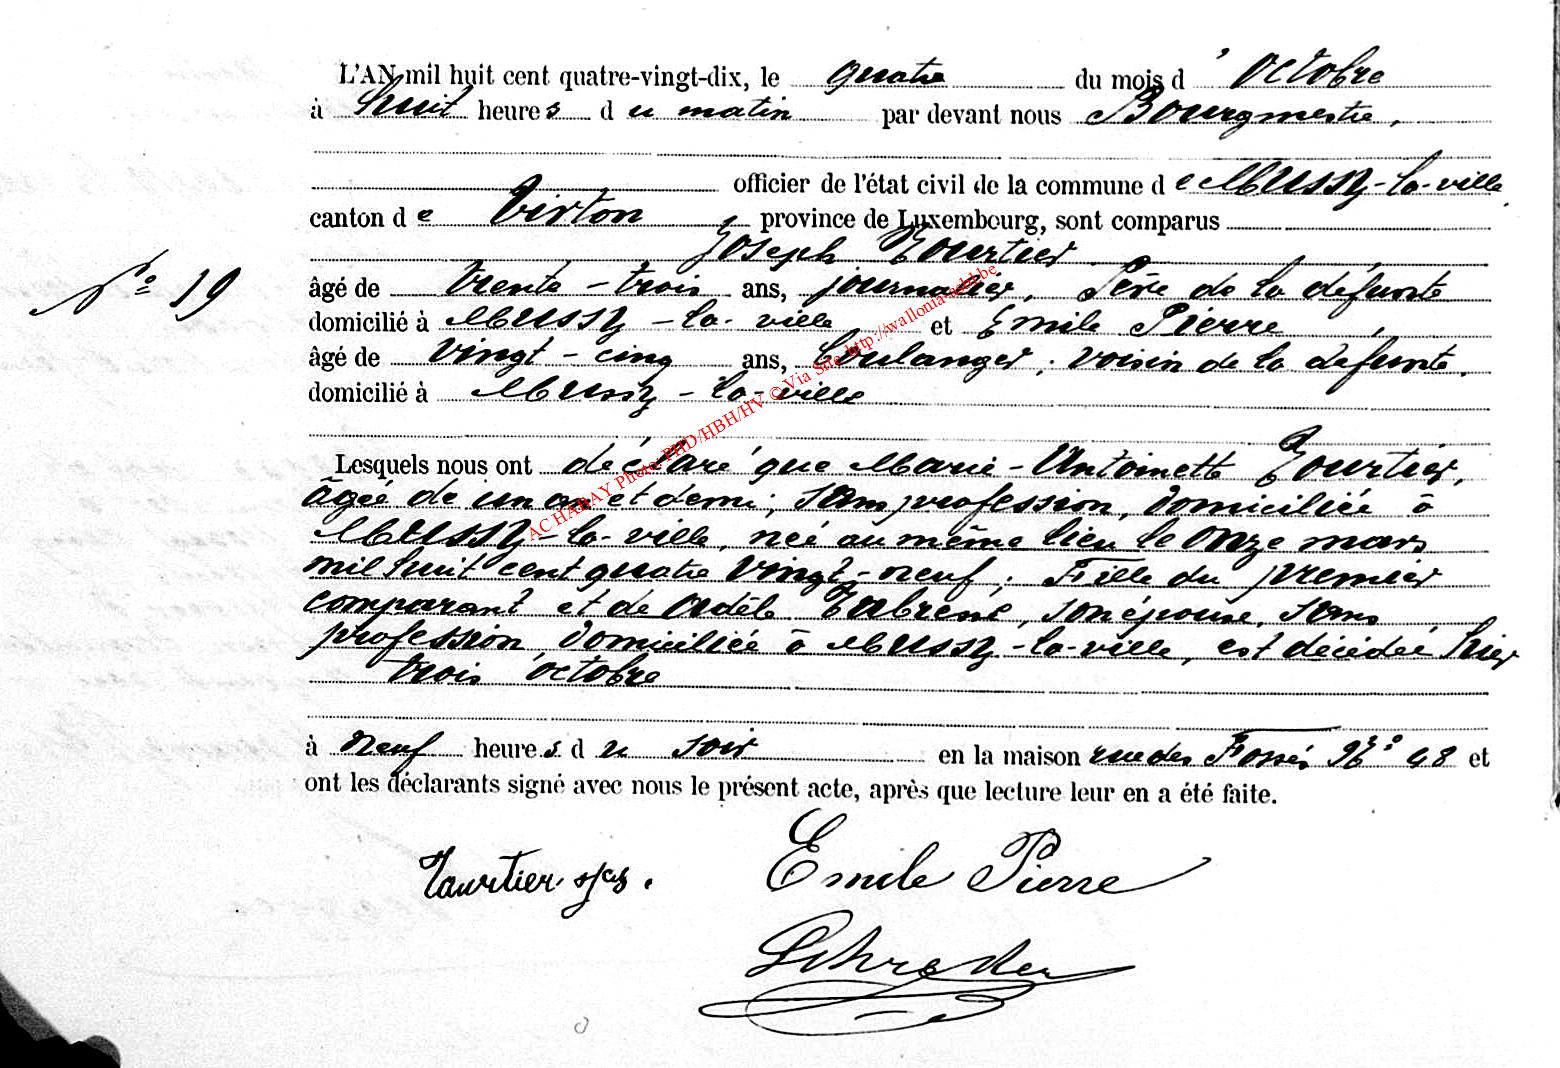 L'AN mil huit cent quatre-vingt-dix, le quatre du mois d'Octobre
à huit heures du matin par devant nous Bourgmestre,
officier de l'état civil de la commune de Mussy-la-ville,
canton de Virton province de Luxembourg, sont comparus
Joseph Tourtier
N° 19
âgé de trente-trois ans, journalier, Père de la défunte
domicilié à Mussy-la-ville et Emile Pierre,
âgé de vingt-cinq ans, boulanger, voisin de la défunte,
domicilié à Mussy-la-ville
Lesquels nous ont déclaré que Marie-Antoinette Tourtier,
âgée de un an et demi, sans profession, domiciliée à
Mussy-la-ville, née au même lieu le onze mars
mil huit cent quatre vingt-neuf; Fille du premier
comparant et de Adèle, son épouse, sans
profession, domiciliée à Mussy-la-ville, est décédée hier
trois octobre
à neuf heures du soir en la maison rue des Fossés N° 48 et
ont les déclarants signé avec nous le présent acte, après que lecture leur en a été faite.
Tourtier Emile Pierre
Schreder
AC HABAY Photo PHD/HBH/HV © Via Site http://wallonia-asbl.be